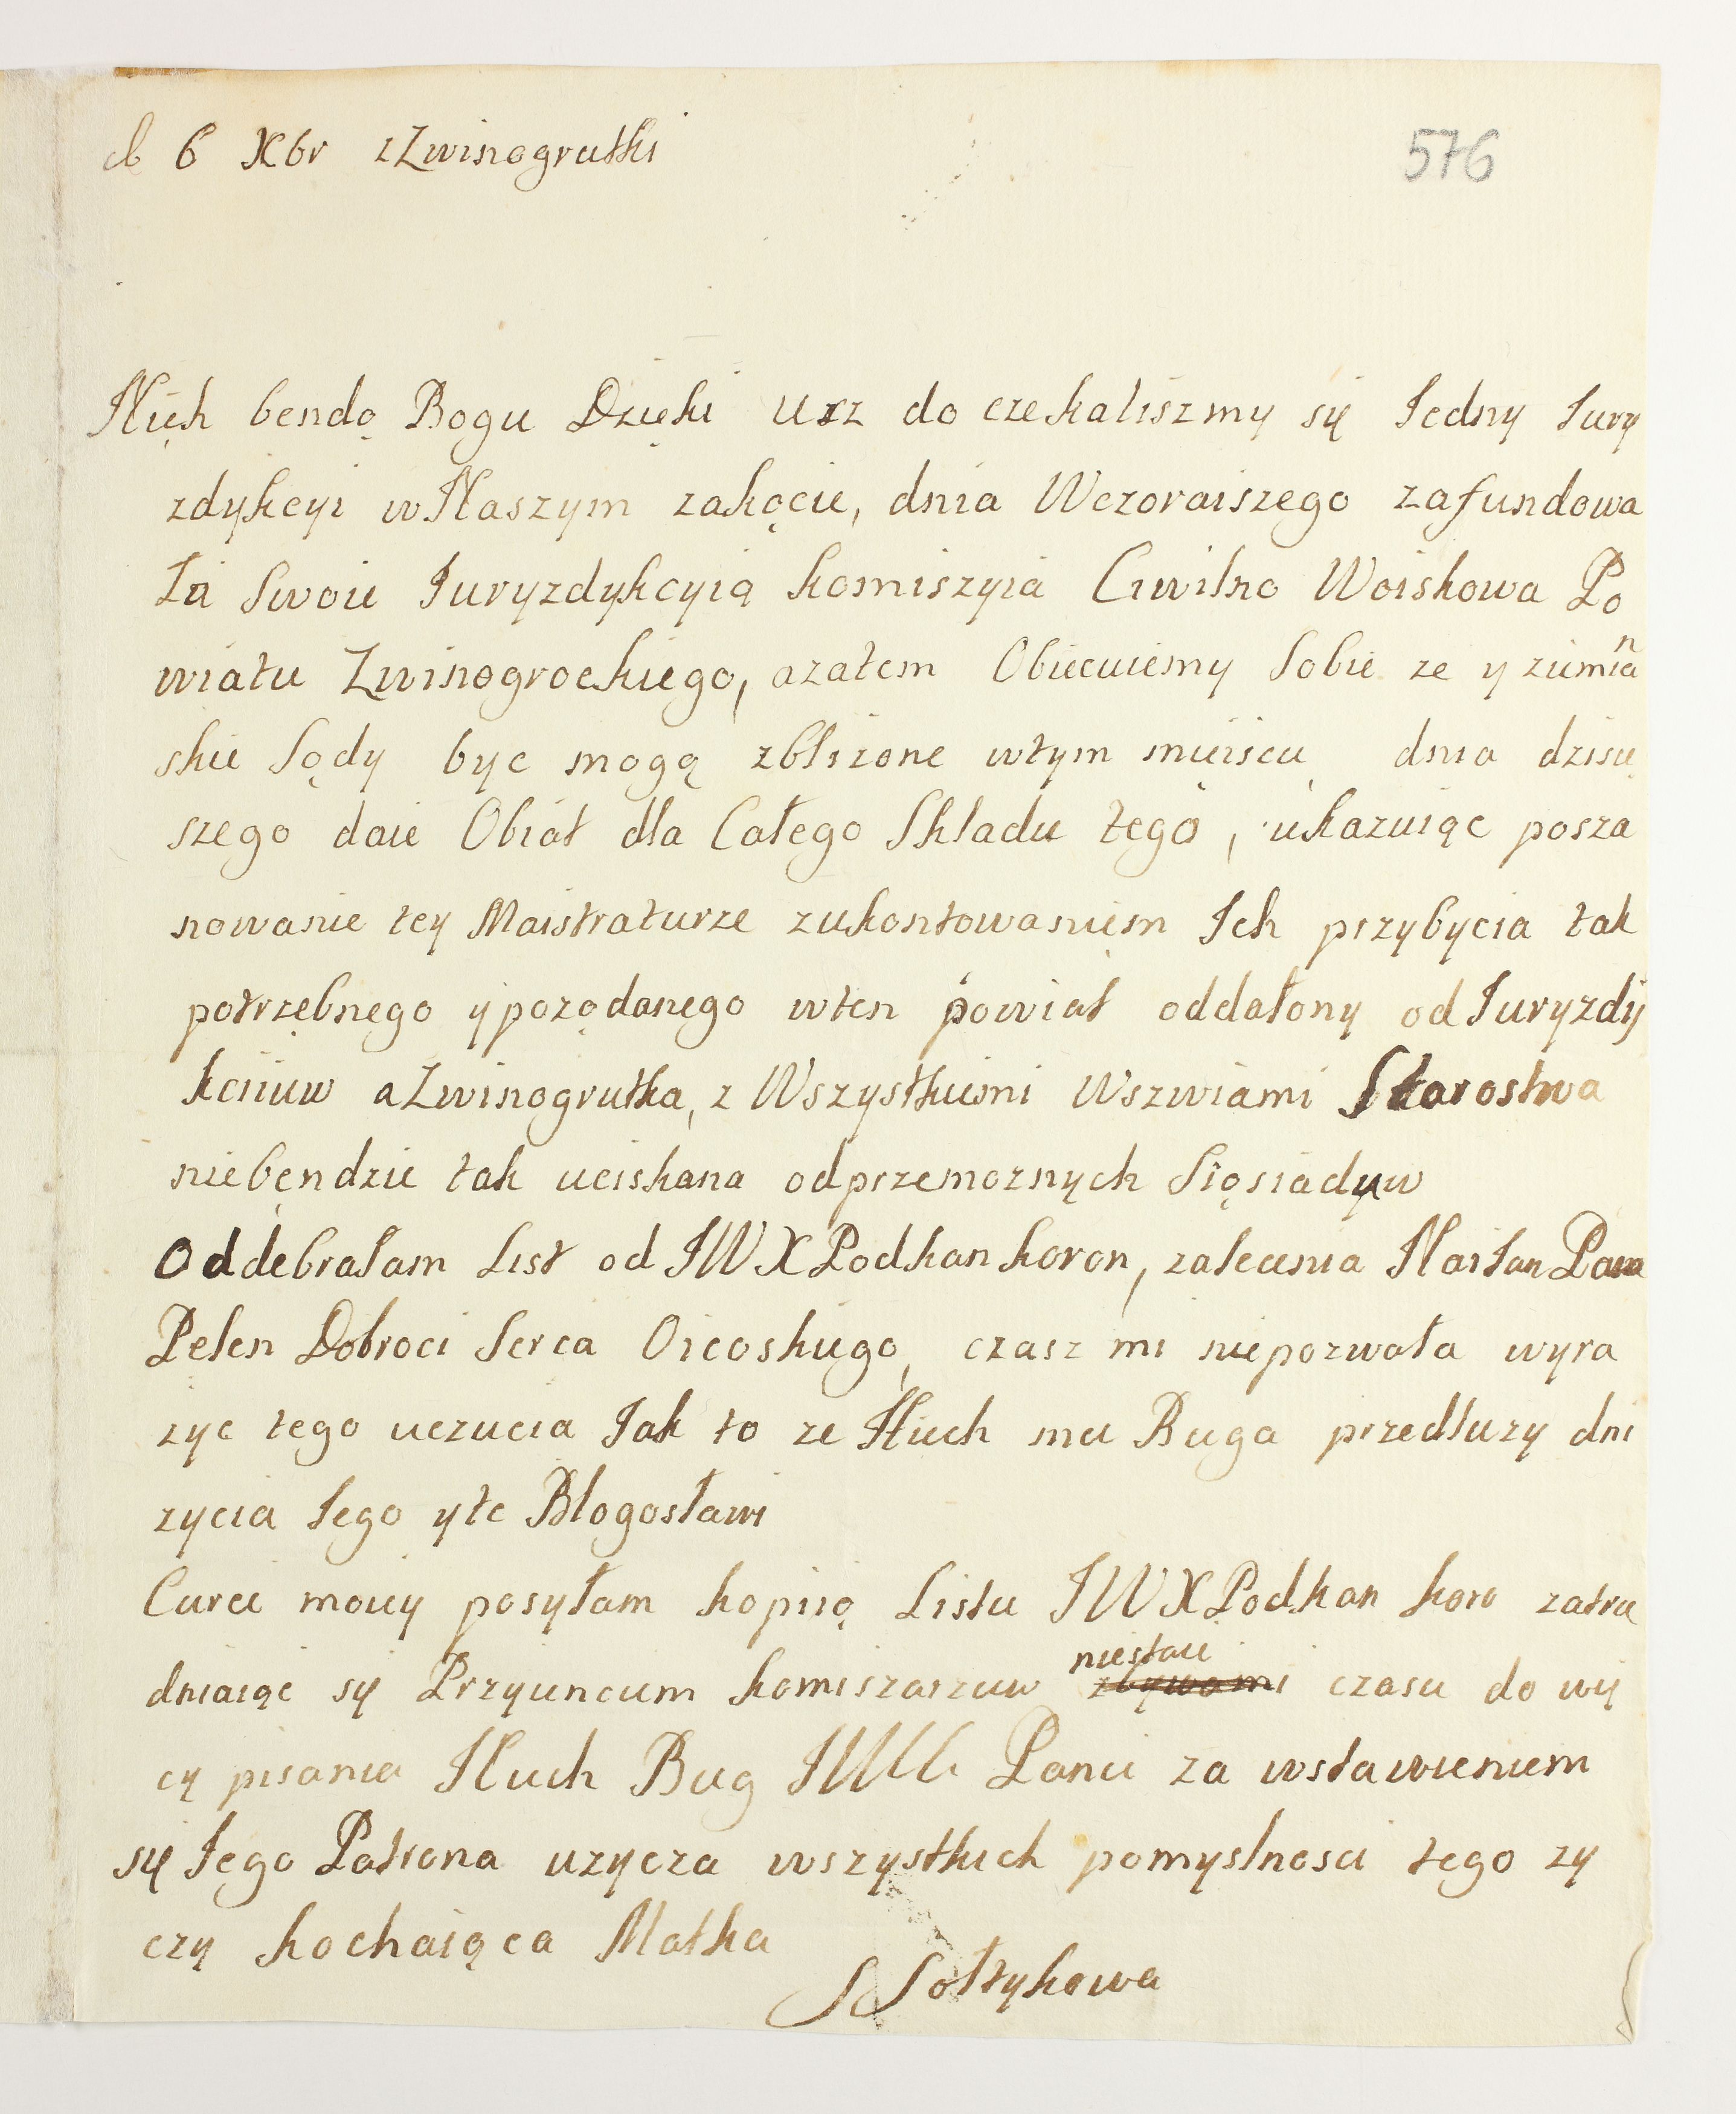 d 6 Xbr zZwinogrutki
576
Nięch bendą Bogu Dzięki Urz do czekaliszmy się Iedny Iury
zdykcyi w Naszym zakącie, dnia Wczoraiszego zafundowa
ła Swoie Iuryzdykcyią komiszyia Ciwilno Woiskowa Po
wiatu Zwinogrockiego, azatem Obiecuiemy Sobie ze y ziemiań
skie Sądy byc mogą zblizone wtym mięiscu dnia dzisię
szego daie Obiat dla Całego Składu tego, ukazuiąc posza
nowanie tey Maistraturze zukontowaniem Ich przybycia tak
potrzębnęgo y poządanego wten powiat oddalony od Iuryzdy
kciiuw a Zwinogrutka, z Wszystkiemi Wszwiami Starostwa
niebęndzie tak uciskana od przemoznych Siąsiaduw
Oddebrałam List od IW X Podkan koron, zalecenia Naiłan Pana
Pełen Dobroci Serca Oicoskiego, czasz mi niepozwala wyra
zyc tego uczucia Iak to ze Niech mu Buga przedłuzy dni
zycia Iego yłe Błogosławi
Curci moiey posyłam kopiią Listu IW X Podkan koro zatru
dniaiąc się Przyiencium komiszarzuw niestaie zbywami czasu do wię
cy pisania Niech Bug IWW Panu za wstawieniem
się Iego Patrona uzycza wszystkich pomyslnosci tego zy
czy kochaiąca Matka
S Sołtykowa